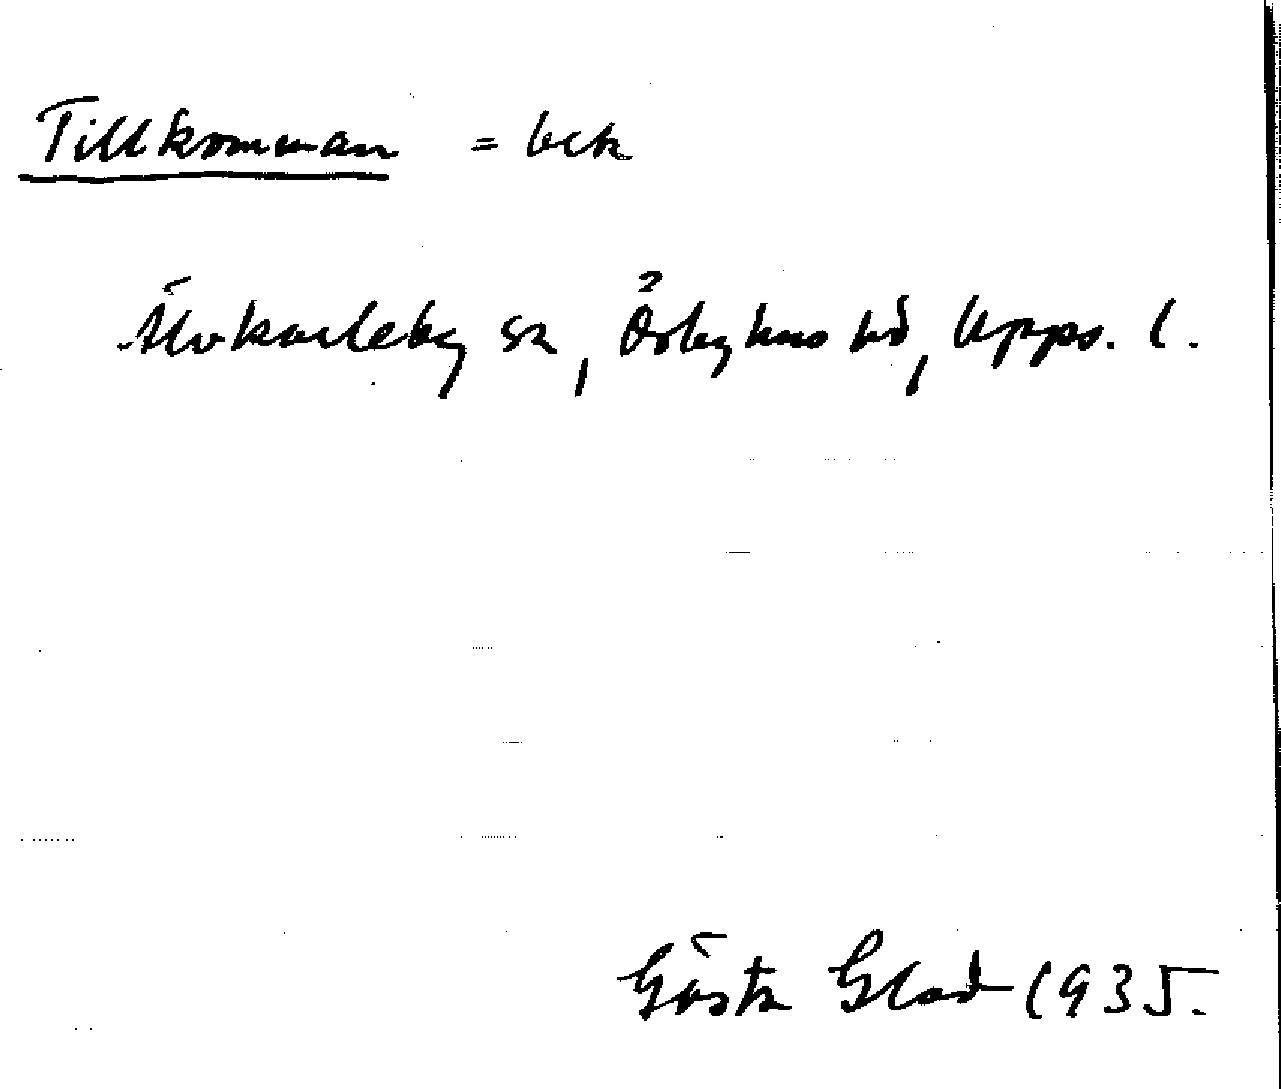 Tillkomman = bck
Älvkarleby sn, Örbyhus hd, Upps. l.
Gösta Glad 1935.